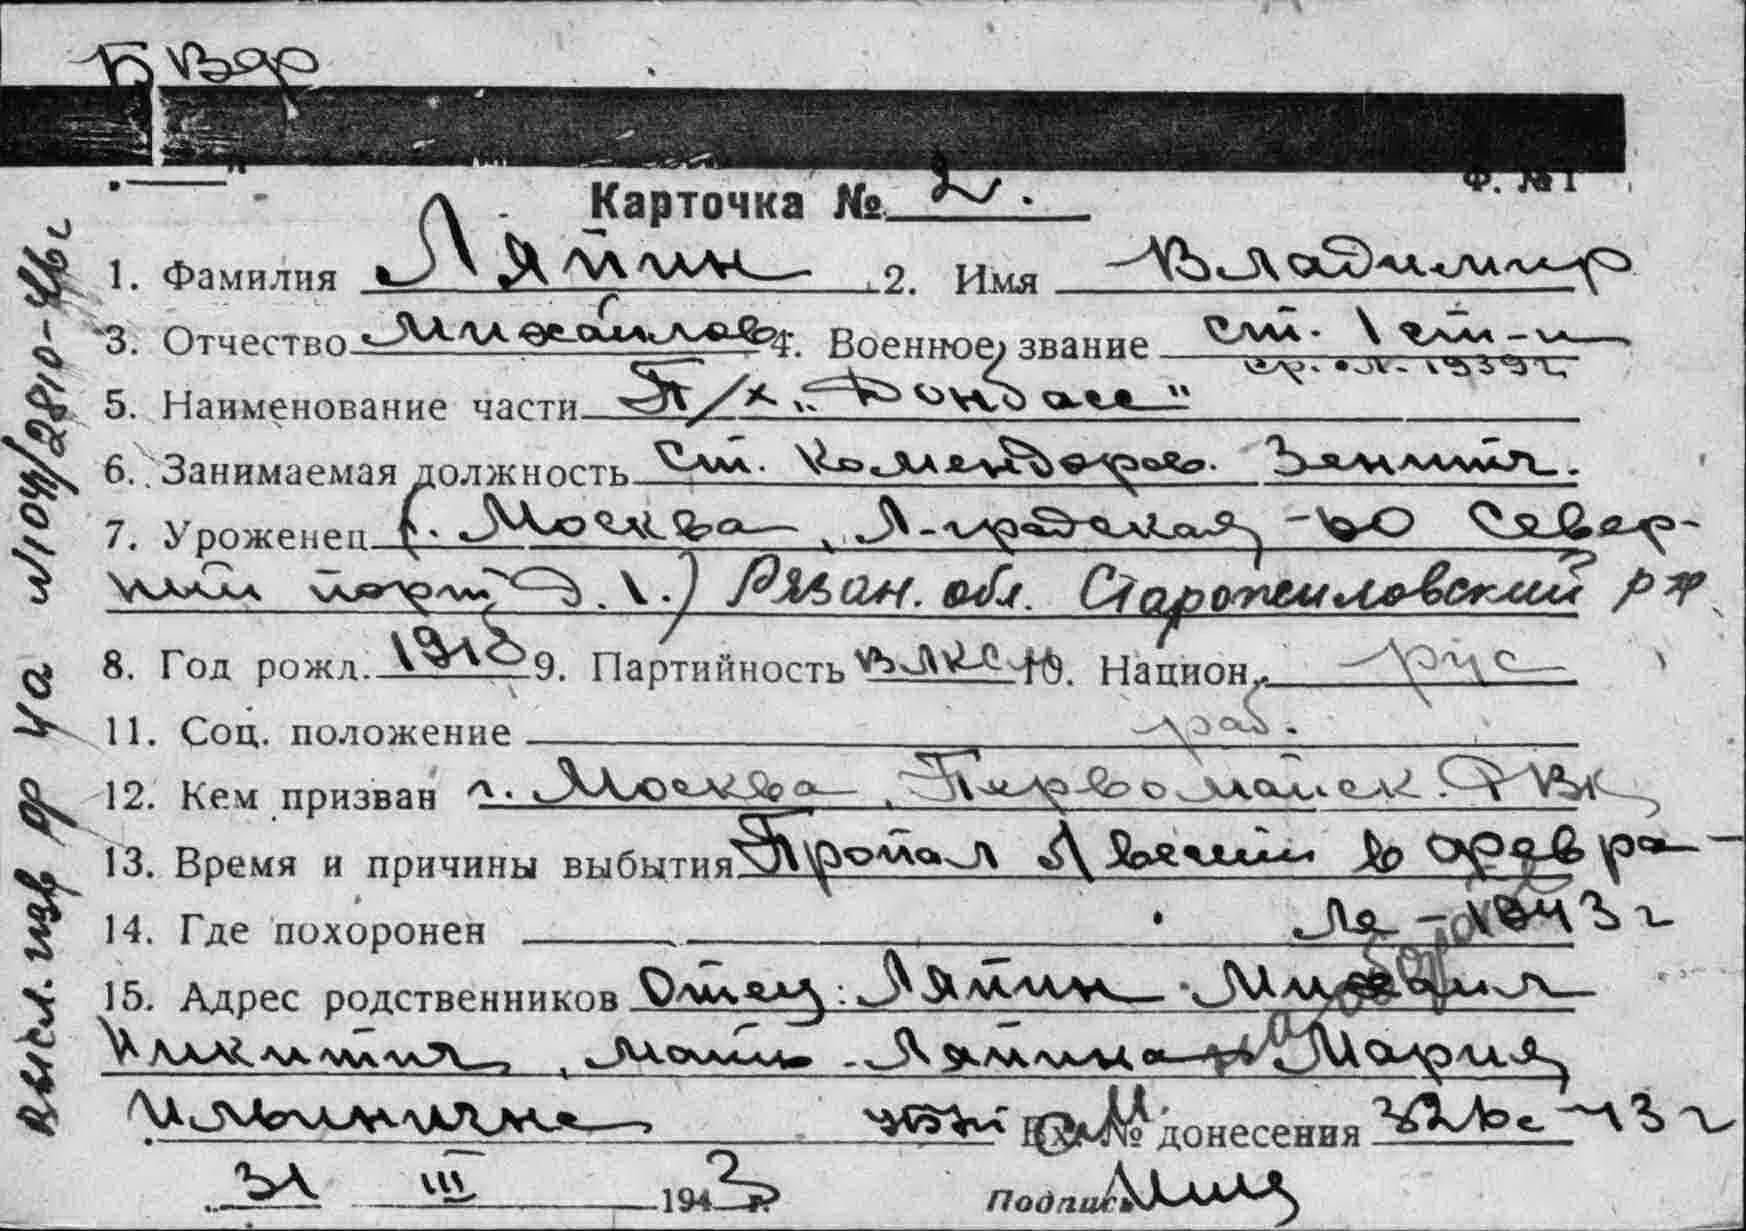 Ф. № 1
Карточка № 2.
1. Фамилия Ляпин 2. Имя Владимир
3. Отчество Михайлов 4. Военное звание ст. 1 ст-и
ср. сл. 1939 г.
5. Наименование части П/х „Донбасс"
6. Занимаемая должность Ст. Комендоров. Зенитч.
7. Уроженец (г. Москва, Л-градская -ю Север-
ный порт Д. 1.) Рязан. обл. Старожиловский р-н
8. Год рожд. 1918 9. Партийность ВЛКСМ 10. Национ. рус
11. Соц. положение раб.
12. Кем призван г. Москва, Первомайск. РВК
13. Время и причины выбытия Пропал б/вести в февра-
ле - 1943 г
14. Где похоронен
15. Адрес родственников Отец: Ляпин Михаил
Никитич, мать - Ляпина Мария
Ильинична Вх. № донесения 326с-43 г
31 III 1943 г. Подпись
высл. изв. на №1104/2810-46г